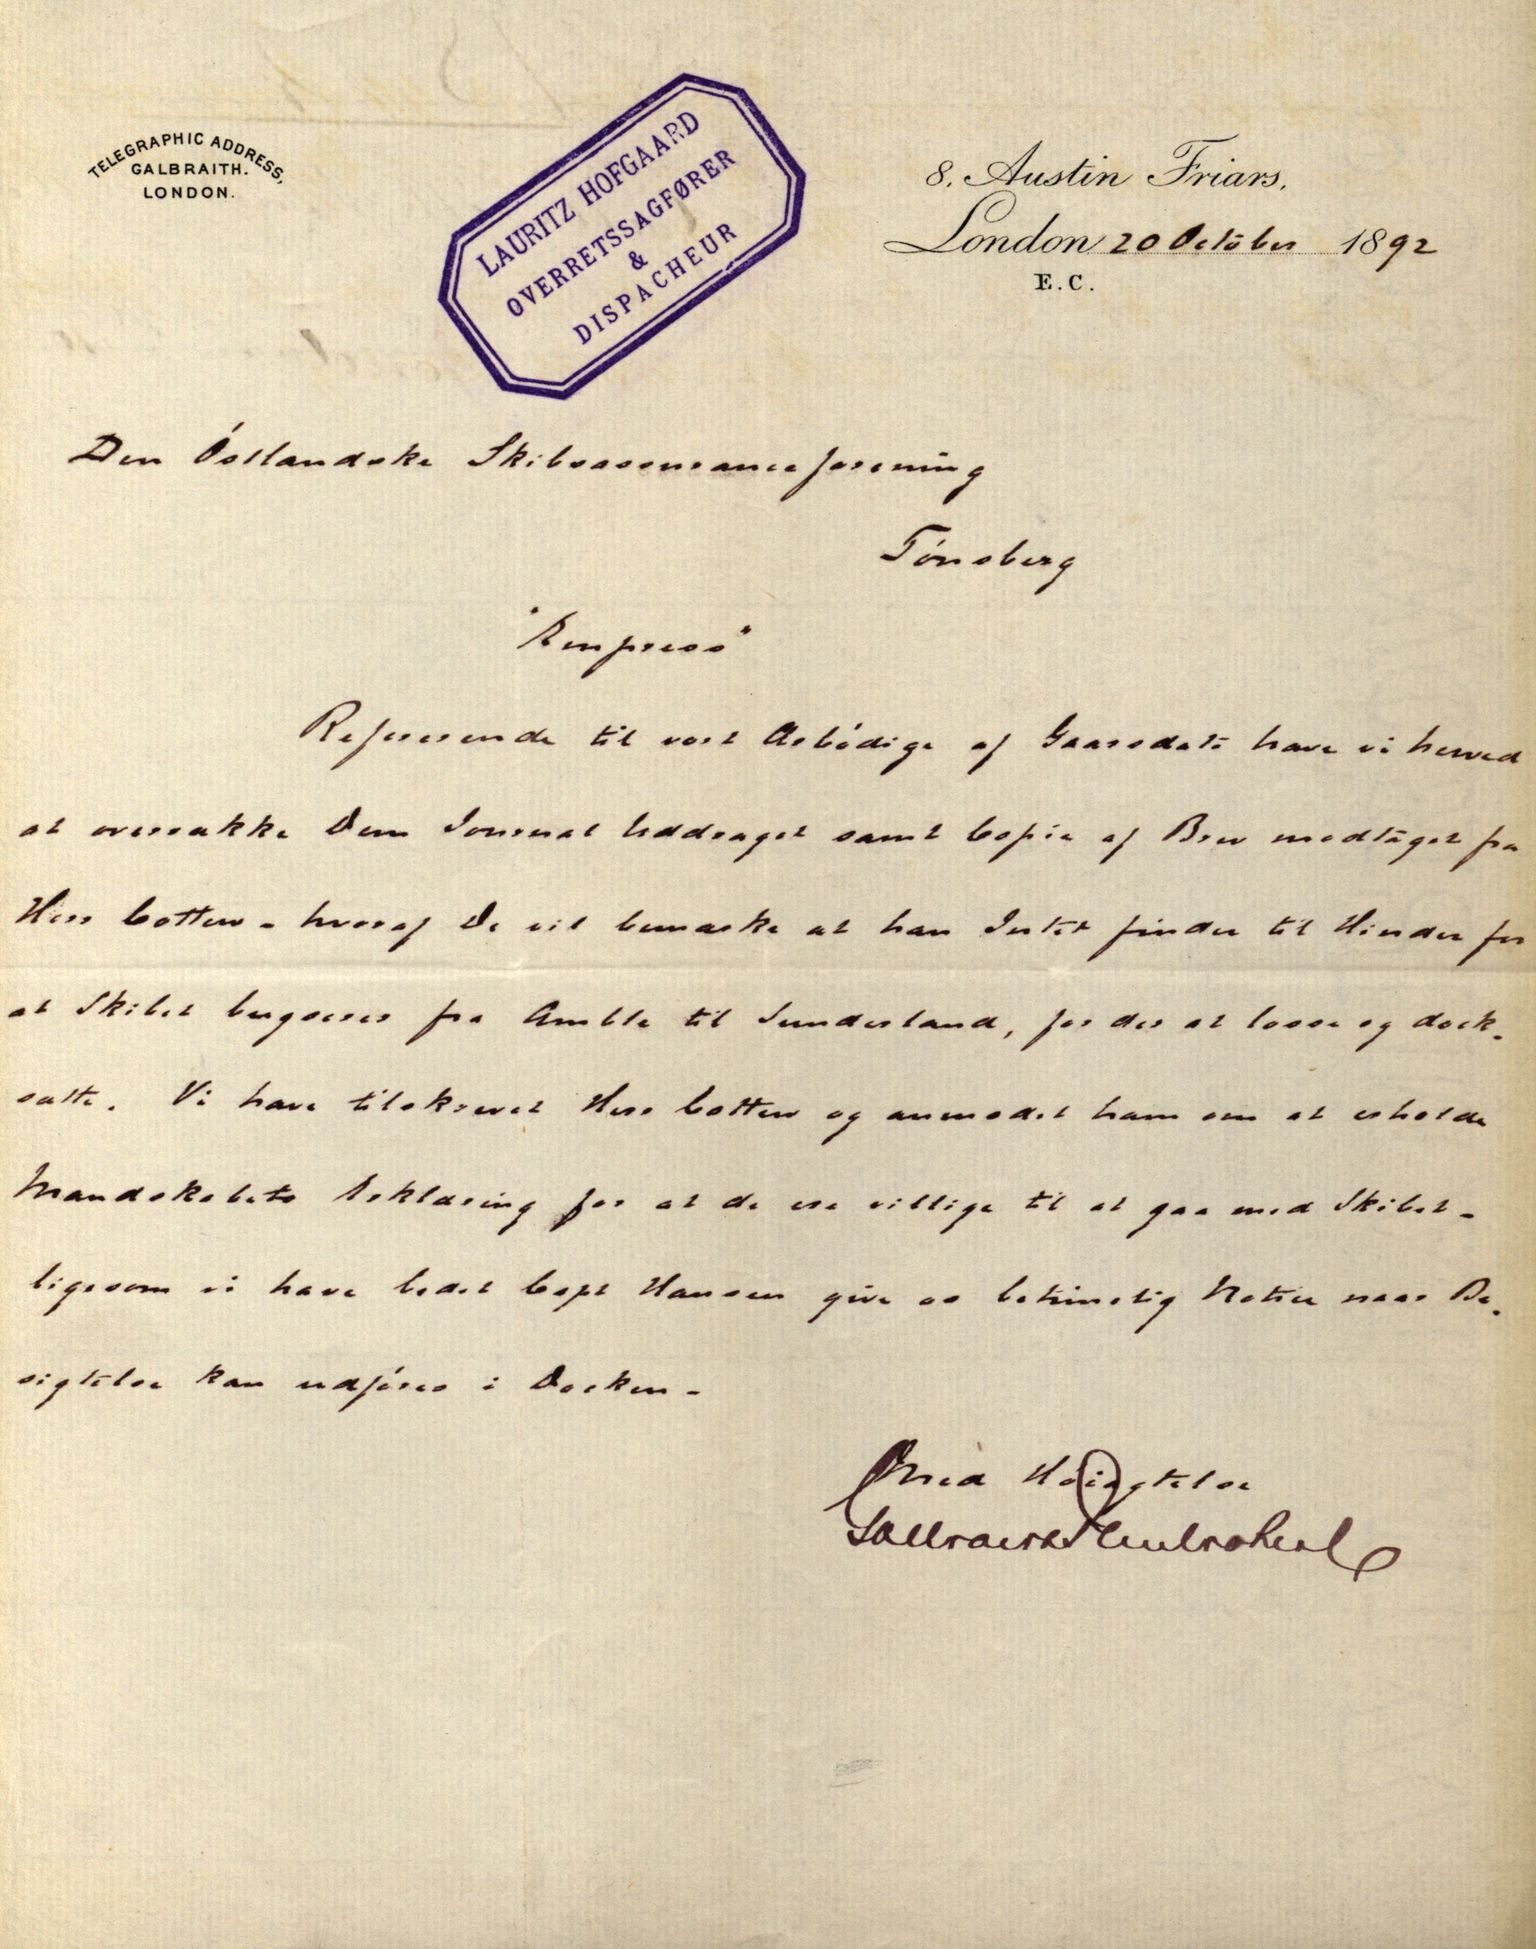 TELEGRAPHIC ADDRESS,
GALBRAITH.
LONDON.
LAURITZ HOFGAARD
OVERRETSSAGFØRER
&
DISPACHEUR
8, Austin Friars,
London 20 October 1892
E.C.
Den Östlandske Skibsassuranceforening
Tönsberg
"Empress"
Refererende til vort Ærbödige af Gaarsdato have vi herved
at oversække Dem Journal Uddraget samt Copie af Brev modtaget fra
Herr Cottew - hvoraf De vil bemærke at han Intet finder til Hinder for
at Skibet bugseres fra Amble til Sunderland, for der at losse og dock-
sætte. Vi have tilskrevet Herr Cottew og anmodet ham om at erholde
Mandskabets Erklæring for at de ere villige til at gaa med Skibet -
ligesom vi have bedet Capt Hansen give os betimelig Notice naar Be-
sigtelse kan udföres i Docken -
Med Höiagtelse
Galbraith Pembroke